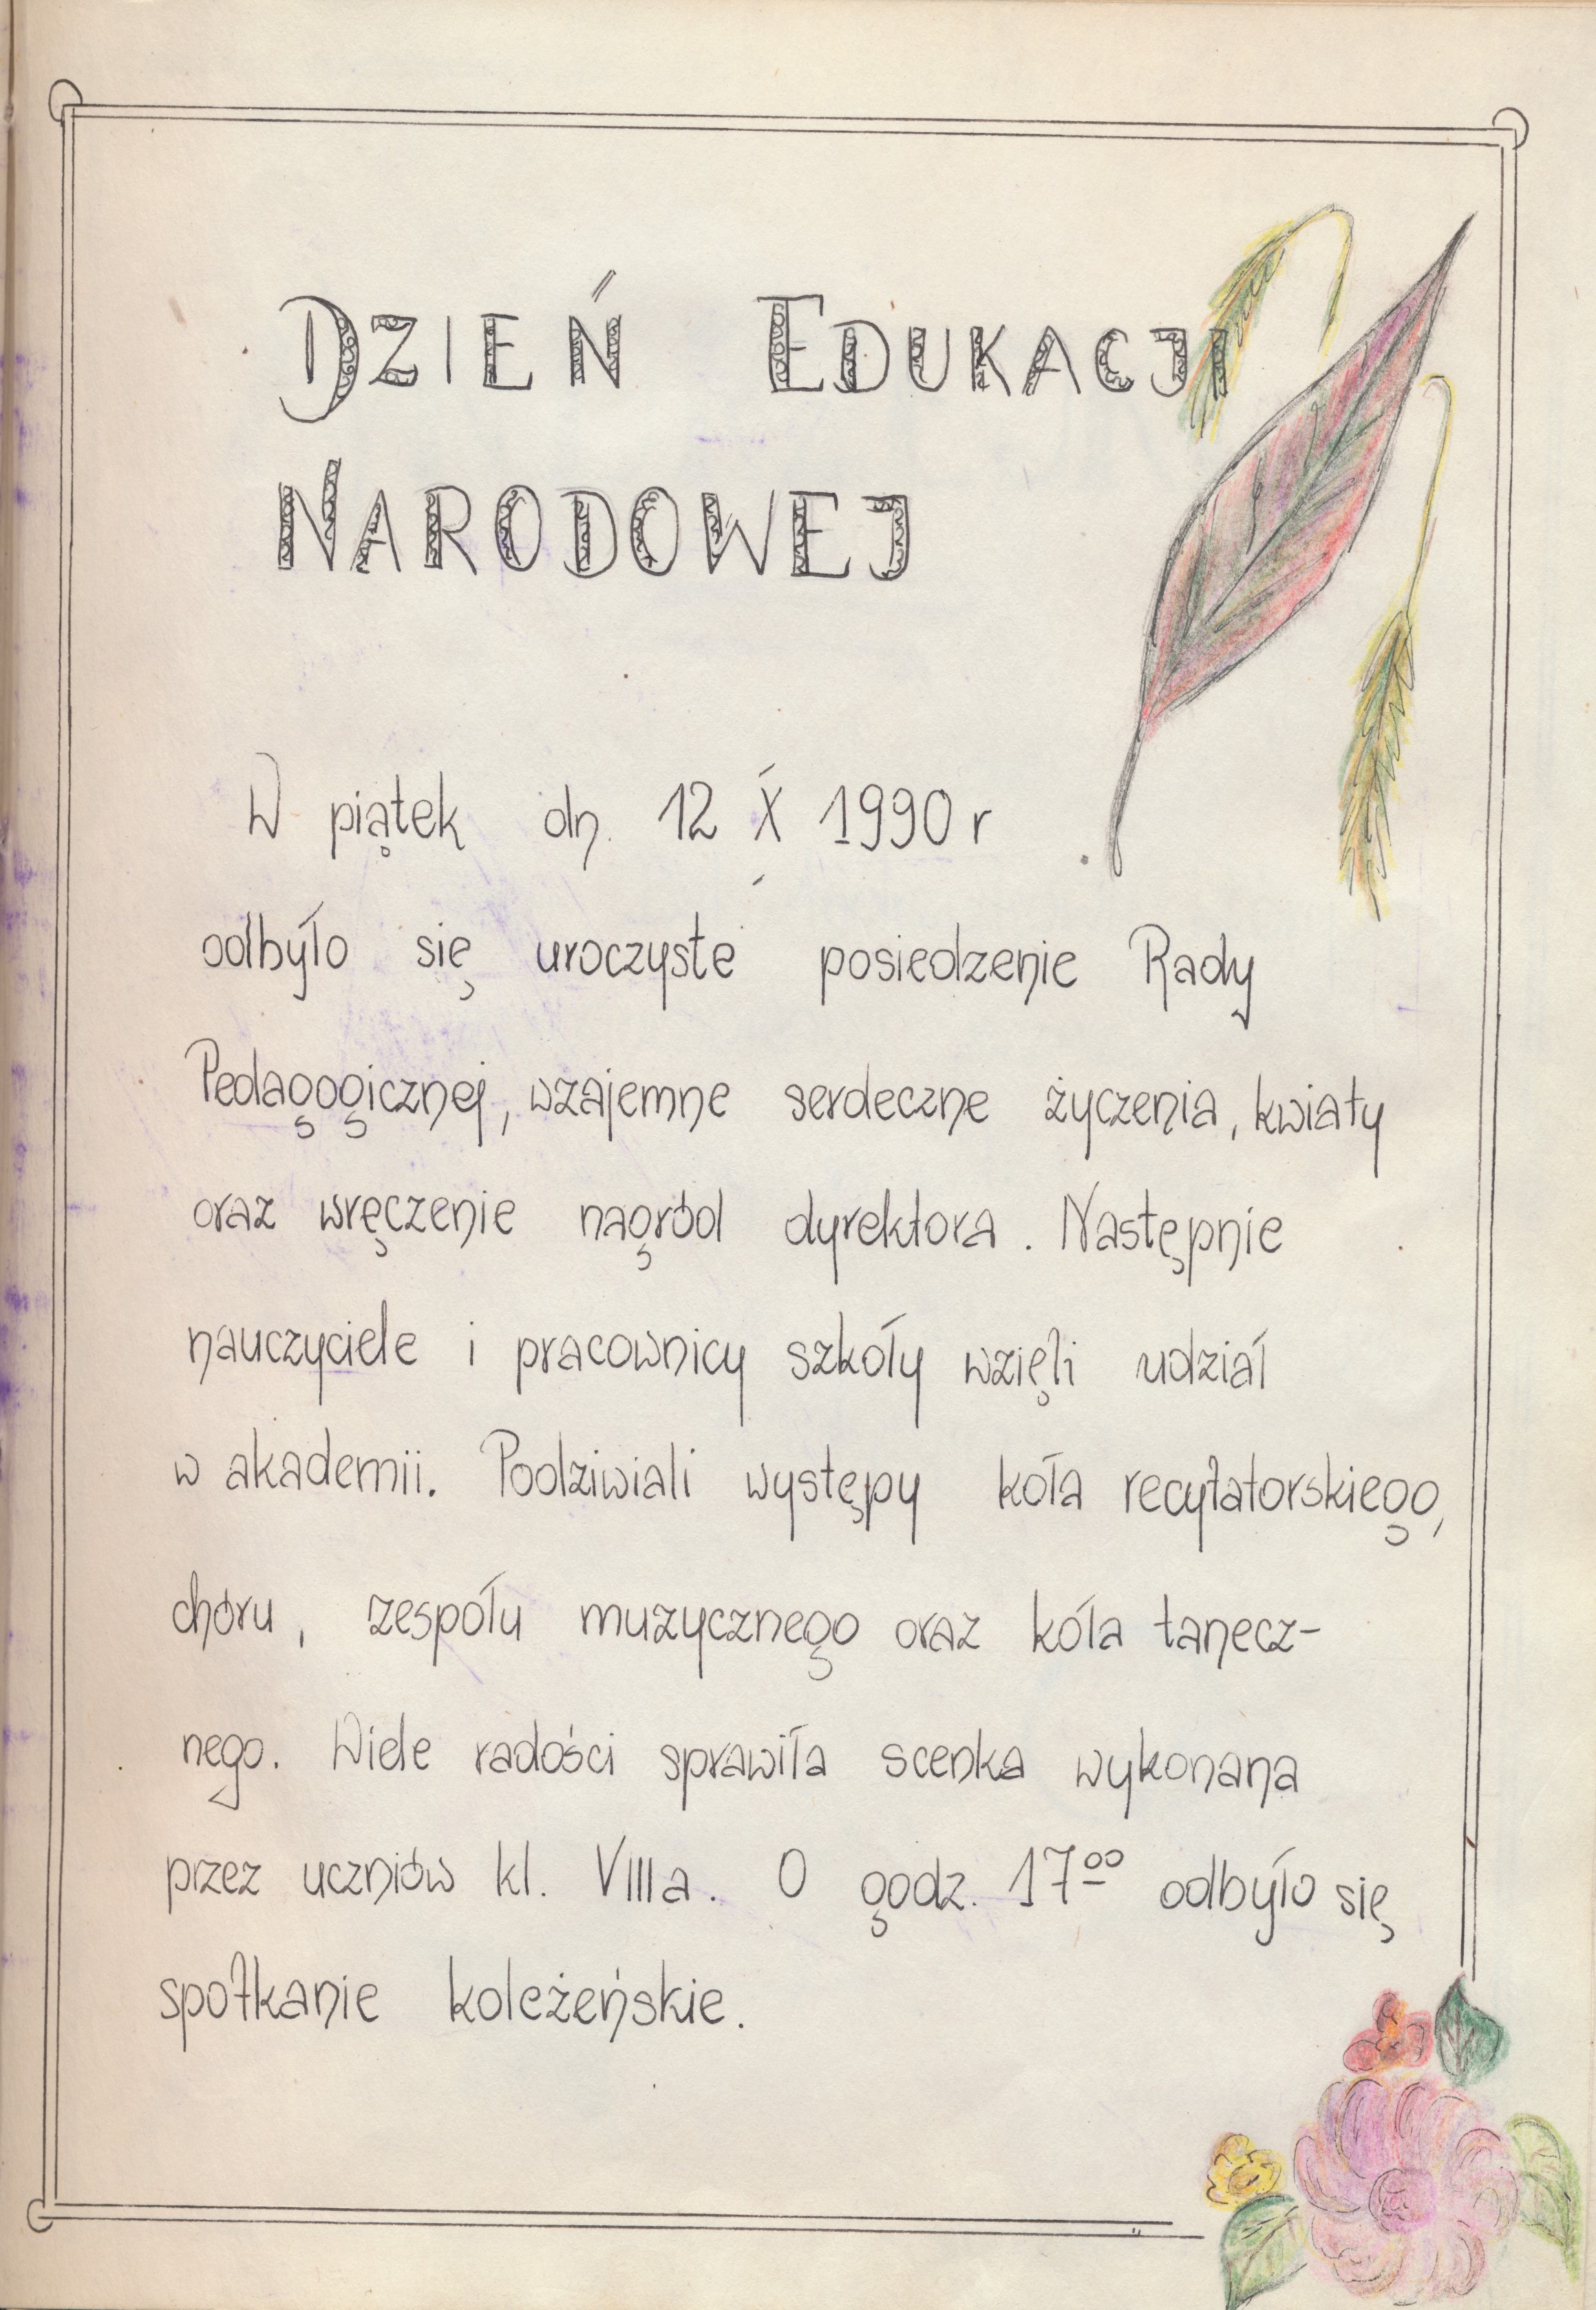 DZIEŃ EDUKACJI
NARODOWEJ
W piątek dn. 12 X 1990 r
odbyło się uroczyste posiedzenie Rady
Pedagogicznej, wzajemne serdeczne życzenia, kwiaty
oraz wręczenie nagród dyrektora. Następnie
nauczyciele i pracownicy szkoły wzięli udział
w akademii. Podziwiali występy koła recytatorskiego,
chóru, zespołu muzycznego oraz koła tanecz-
nego. Wiele radości sprawiła scenka wykonana
przez uczniów kl. VIIIa. O godz. 17⁰⁰ odbyło się
spotkanie koleżeńskie.